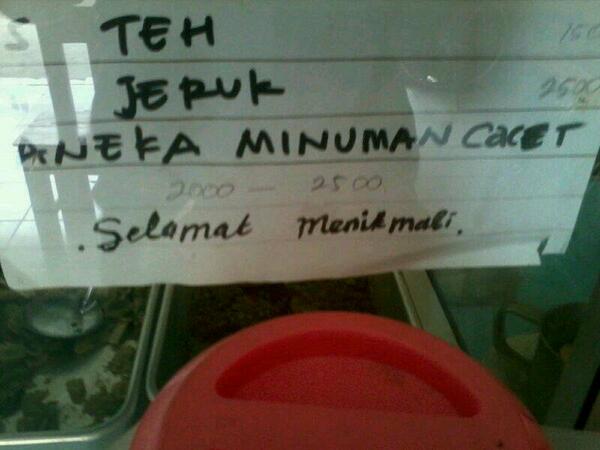 S TEH 150
JERUK 2500
ANEKA MINUMAN CACET
2000 - 2500
. Selamat Menikmati.